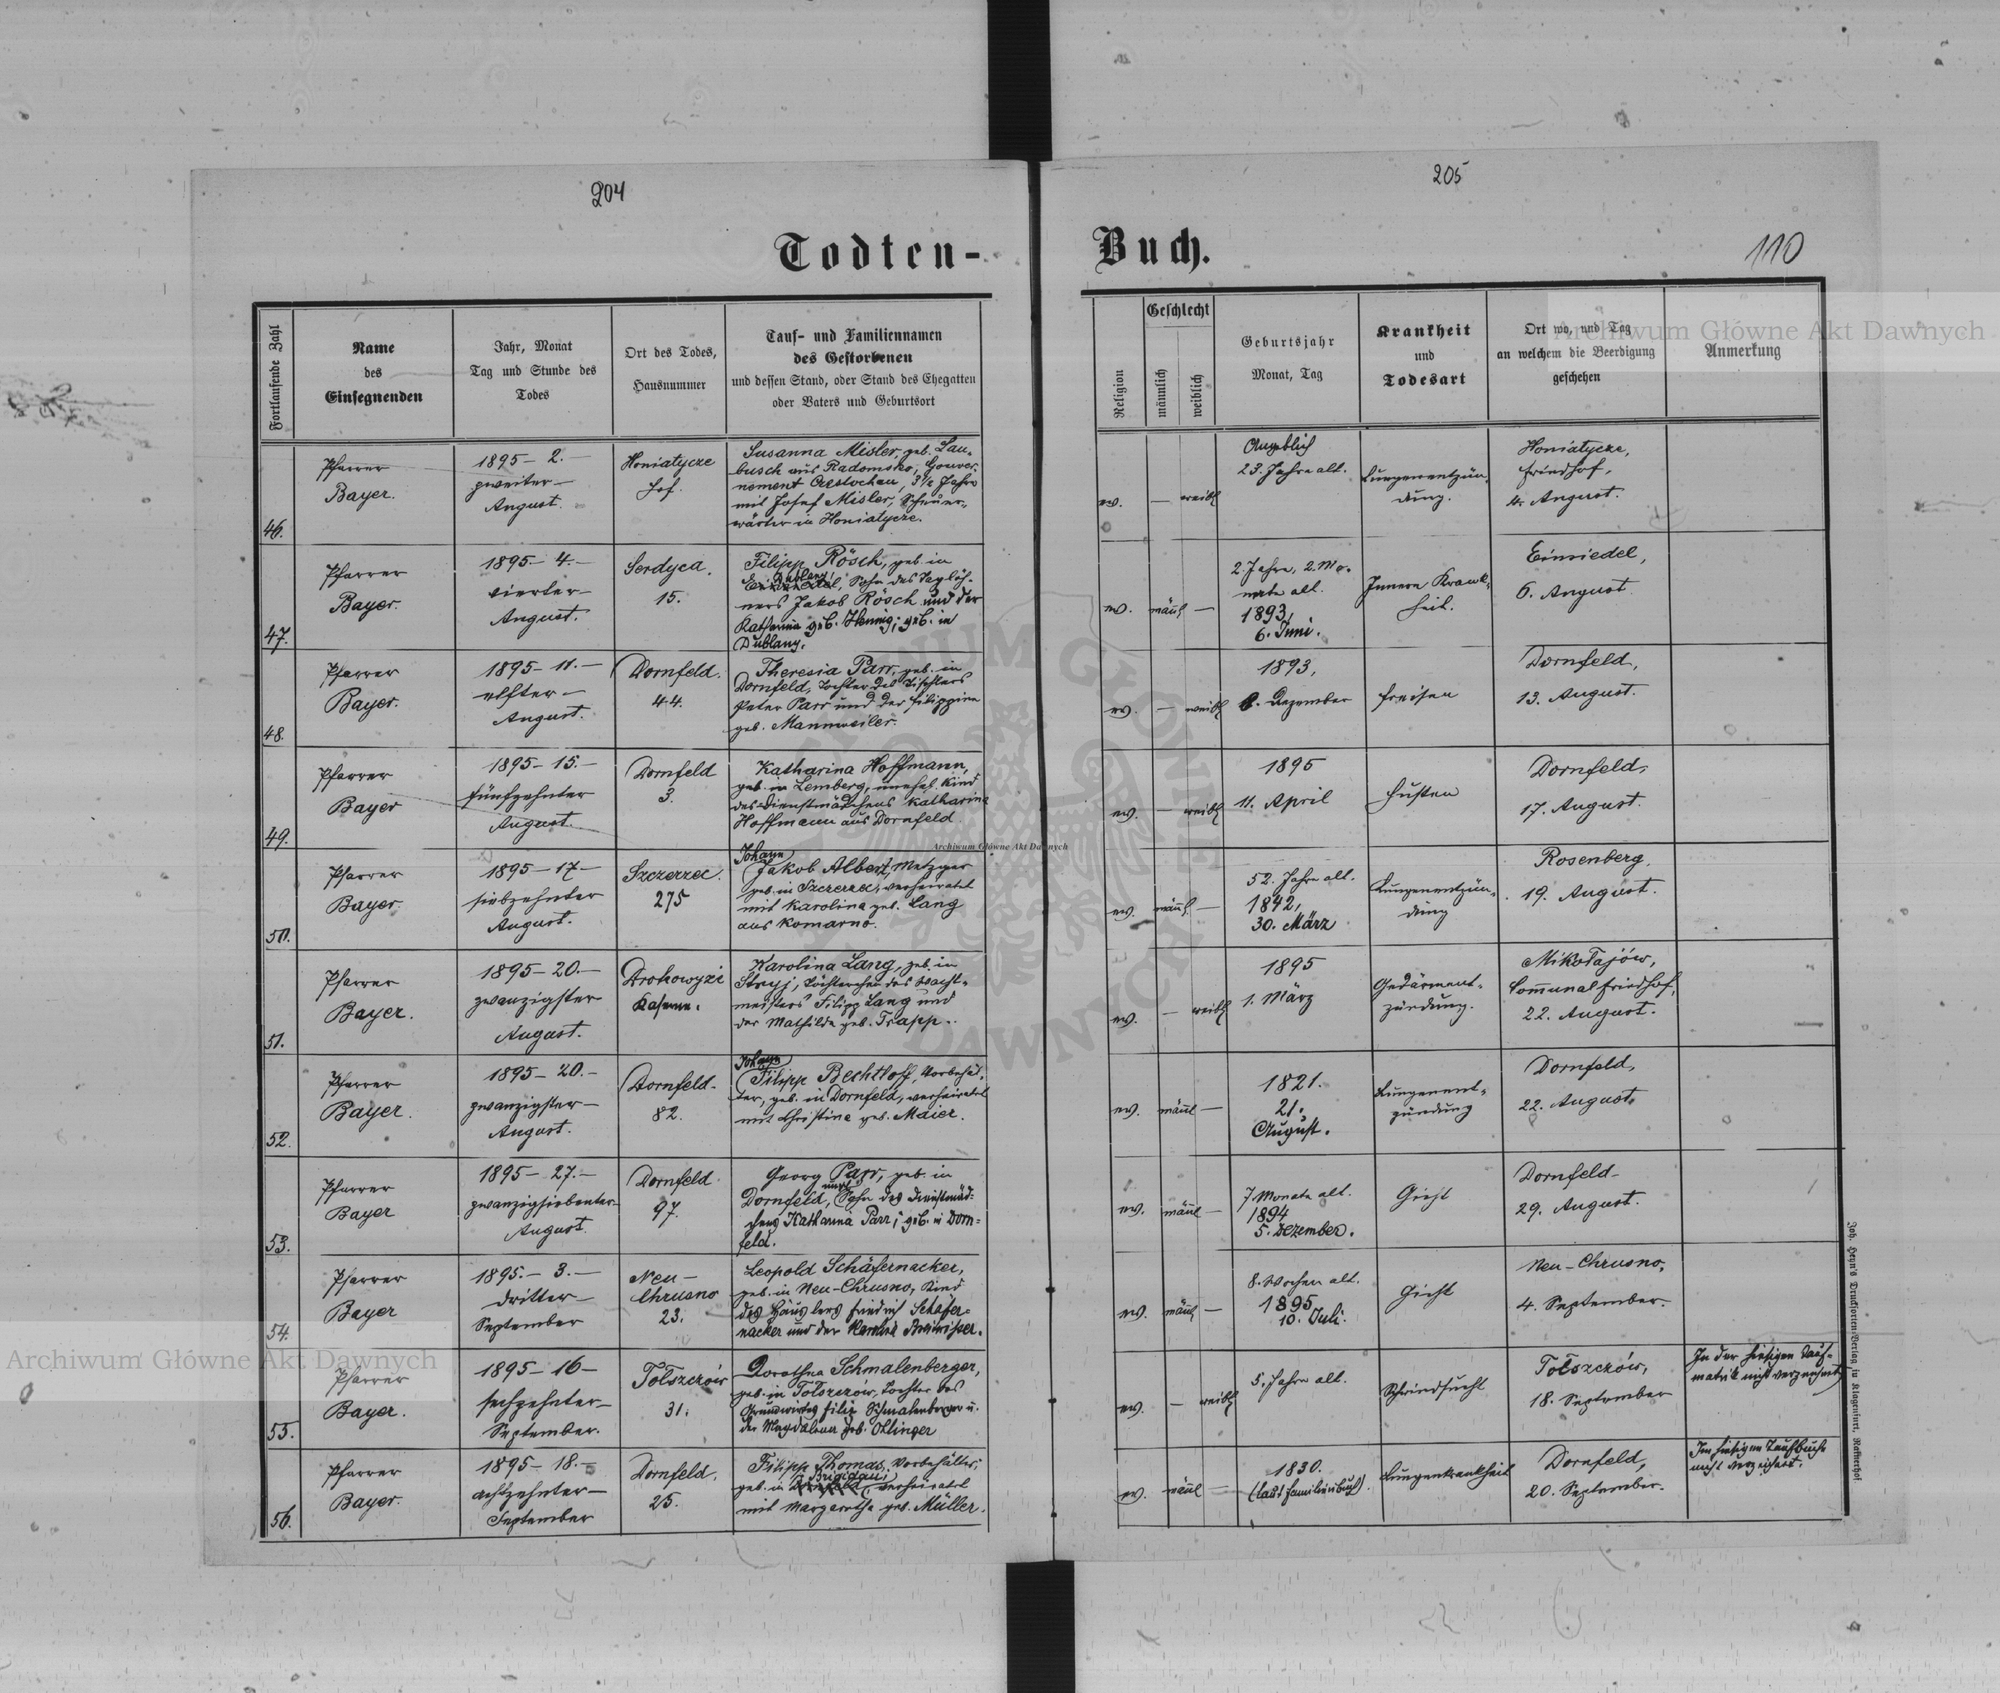 204
205
Todten-
Buch.
110
Fortlaufende Zahl
Name
des
Einsegnenden
Jahr, Monat
Tag und Stunde des
Todes
Ort des Todes,
Hausnummer
Tauf- und Familiennamen
des Gestorbenen
und dessen Stand, oder Stand des Ehegatten
oder Vaters und Geburtsort
Religion
Geschlecht
männlich
weiblich
Geburtsjahr
Monat, Tag
Krankheit
und
Todesart
Ort wo, und Tag
an welchem die Beerdigung
geschehen
Anmerkung
46.
Pfarrer
Bayer.
1895 - 2. -
zweiter -
August.
Honiatycze
Hof.
Susanna Misler, geb. Lau-
busch aus Radomsko, Gouver-
nement Czestochau, 3½ Jahre
mit Josef Misler, Scheuer-
wärter in Honiatycze.
ev.
—
weibl
Angeblich
23. Jahre alt.
Lungenentzün-
dung.
Honiatycze,
Friedhof,
4. August.
47.
Pfarrer
Bayer.
1895 - 4. -
vierter -
August.
Serdyca.
15.
Filipp Rösch, geb. in
Dublany,
Sohn des Taglöh-
ners Jakob Rösch und der
Katharina geb. Hennig; geb. in
Dublany.
ev.
männl
—
2. Jahre, 2. Mo-
nate alt.
1893,
6. Juni.
Innere Krank-
heit.
Einsiedel,
6. August.
48.
Pfarrer
Bayer.
1895 - 11. -
elfter -
August.
Dornfeld.
44.
Theresia Parr, geb. in
Dornfeld, Tochter des Tischlers
Peter Parr und der Filippine
geb. Mannweiler.
ev.
—
weibl
1893,
6. Dezember
Freisen
Dornfeld,
13. August.
49.
Pfarrer
Bayer
1895 - 15. -
fünfzehnter
August.
Dornfeld
3.
Katharina Hoffmann,
geb. in Lemberg, unehel. Kind
des Dienstmädchens Katharina
Hoffmann aus Dornfeld
ev.
—
weibl
1895
11. April
Husten
Dornfeld,
17. August.
50.
Pfarrer
Bayer.
1895 - 17 -
siebzehnter
August.
Szczerzec.
275
Johann
Jakob Albert, Metzger
geb. in Szczerzec, verheiratet
mit Karolina geb. Lang
aus Komarno.
ev.
männl.
—
52. Jahre alt.
1842,
30. März
Lungenentzün-
dung
Rosenberg,
19. August.
51.
Pfarrer
Bayer.
1895 - 20. -
zwanzigster
August.
Drohowyże
Kaserne.
Karolina Lang, geb. in
Stryj, Töchterchen des Wacht-
meisters Filipp Lang und
der Mathilde geb. Trapp.
ev.
—
weibl
1895
1. März
Gedärment-
zündung.
Mikołajów,
Communal Friedhof,
22. August.
52.
Pfarrer
Bayer.
1895 - 20. -
zwanzigster -
August.
Dornfeld -
82.
Johann
Filipp Bechtloff, Vorbehäl-
ter, geb. in Dornfeld, verheiratet
mit Christine geb. Maier.
ev.
männl
—
1821.
21.
August.
Lungenent-
zündung
Dornfeld,
22. August.
53.
Pfarrer
Bayer
1895 - 27. -
zwanzigsiebenter -
August.
Dornfeld.
97.
Georg Parr, geb. in
unehel
Dornfeld, Sohn des Dienstmäd-
chens Katharina Parr; geb. in Dorn-
feld.
ev.
männl
—
7 Monate alt.
1894
5. Dezember.
Gicht
Dornfeld -
29. August.
54.
Pfarrer
Bayer
1895. - 3. -
dritter -
September
Neu -
Chrusno
23.
Leopold Schäfernacker,
geb. in Neu-Chrusno, Kind
des Häuslers Friedrich Schäfer-
nacker und der
ev.
männl
—
8. Wochen alt.
1895
10. Juli.
Gicht
Neu-Chrusno,
4. September.
55.
Pfarrer
Bayer.
1895 - 16 -
sechzehnter -
September.
Tołszczów
31.
Dorothea Schmalenberger,
geb. in Tołszczów, Tochter des
Grundwirtes Filip Schmalenberger u.
der Magdalena geb. Ottinger
ev.
—
weibl
5. Jahre alt.
Schwindsucht
Tołszczów,
18. September
In der hiesigen Tauf-
matrik nicht verzeichnet)
56.
Pfarrer
Bayer.
1895 - 18. -
achtzehnter -
September
Dornfeld.
25.
Filipp Thomas, Vorbehälter;
Brigidau
geb. in Dornfeld, verheiratet
mit Margaretha geb. Müller.
ev.
männl
—
1830.
(laut Familienbuch).
Lungenkrankheit
Dornfeld,
20. September.
Im hiesigen Taufbuche
nicht verzeichnet.
Joh. Heyn's Drucksorten-Verlag in Klagenfurt, Rafflerhof
Archiwum Główne Akt Dawnych
Archiwum Główne Akt Dawnych
Archiwum Główne Akt Dawnych
ARCHIWUM GŁÓWNE AKT DAWNYCH